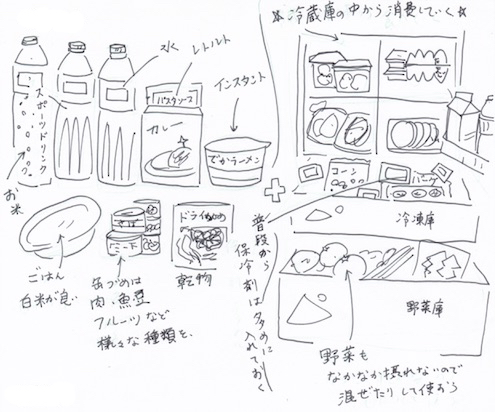 ☆冷蔵庫の中から消費していく☆
水
レトルト
インスタント
スポーツドリンク
パスタソース
カレー
でかラーメン
お米
ごはん
白米が良い
缶づめは
肉、魚、豆
フルーツなど
様々な種類を。
ミート
ドライ
乾物
普段から
保冷剤は多めに
入れておく
コーン
冷凍庫
野菜庫
野菜も
なかなか摂れないので
混ぜたりして使おう